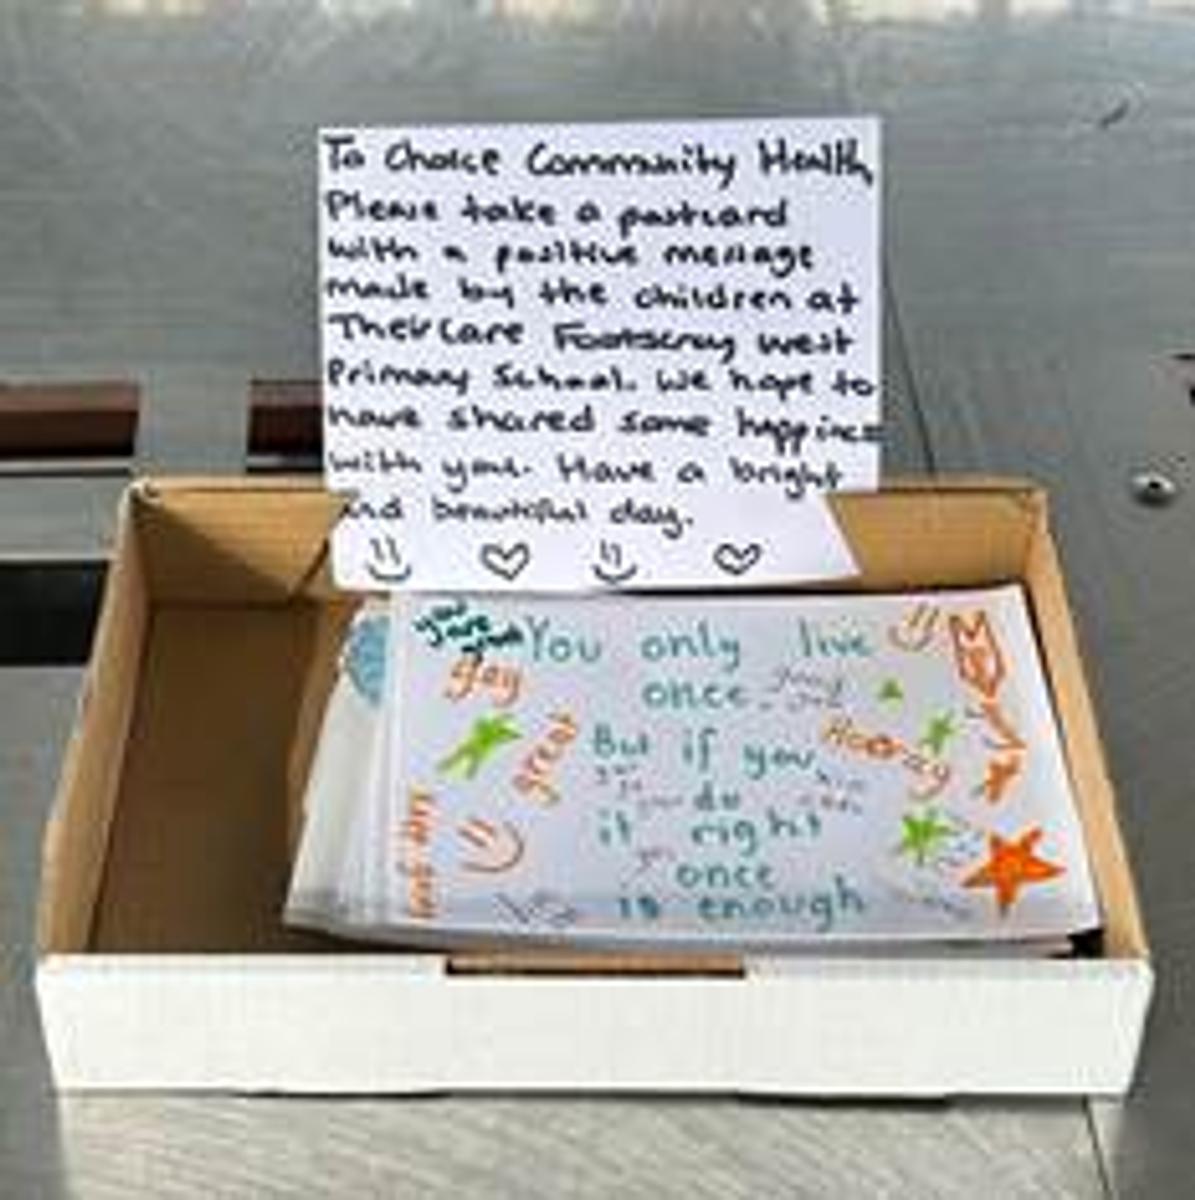 To Choice Community Health,
Please take a postcard
with a positive message
made by the children at
TheirCare Footscray West
Primary School. We hope to
have shared some happiness
with you. Have a bright
and beautiful day.
you are
You only live
once
joy
But if you
great
Hooray
do
it right
once
is enough